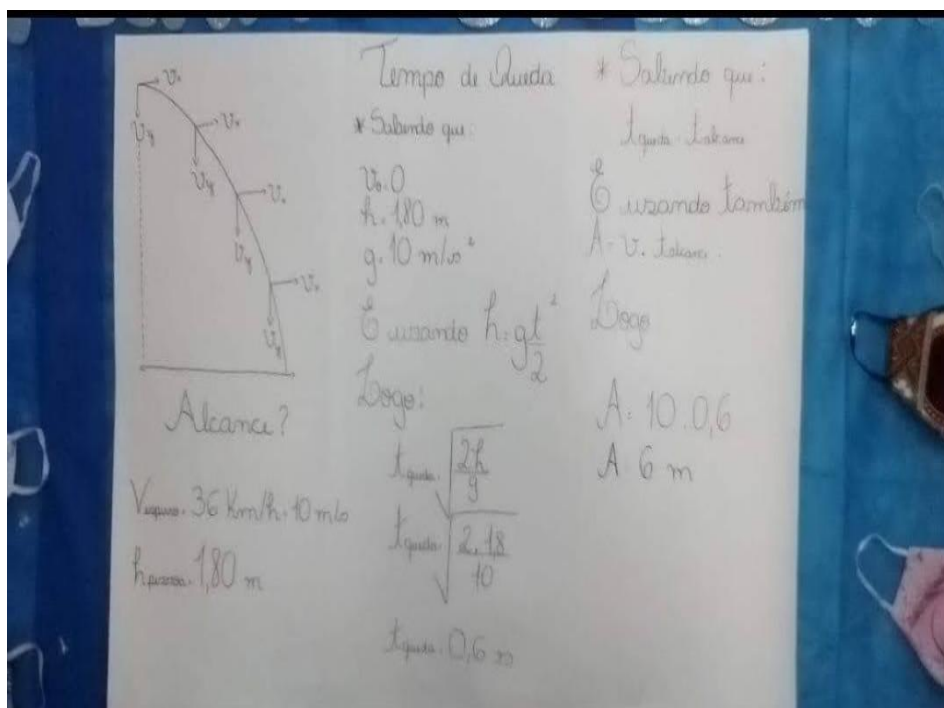 v₀
v₀
v₀
v₀
vy
vy
vy
vy
Alcance?
V 36 Km/h = 10 m/s
h pessoa = 1,80 m
Tempo de Queda
* Sabendo que:
v₀ = 0
h = 1,80 m
g = 10 m/s²
E usando h = gt²/2
Logo:
t queda = √2h/g
t queda = √2.1,8/10
t queda = 0,6
* Sabendo que:
t queda = t alcance
E usando também
A = v. t alcance
Logo
A = 10.0,6
A = 6 m